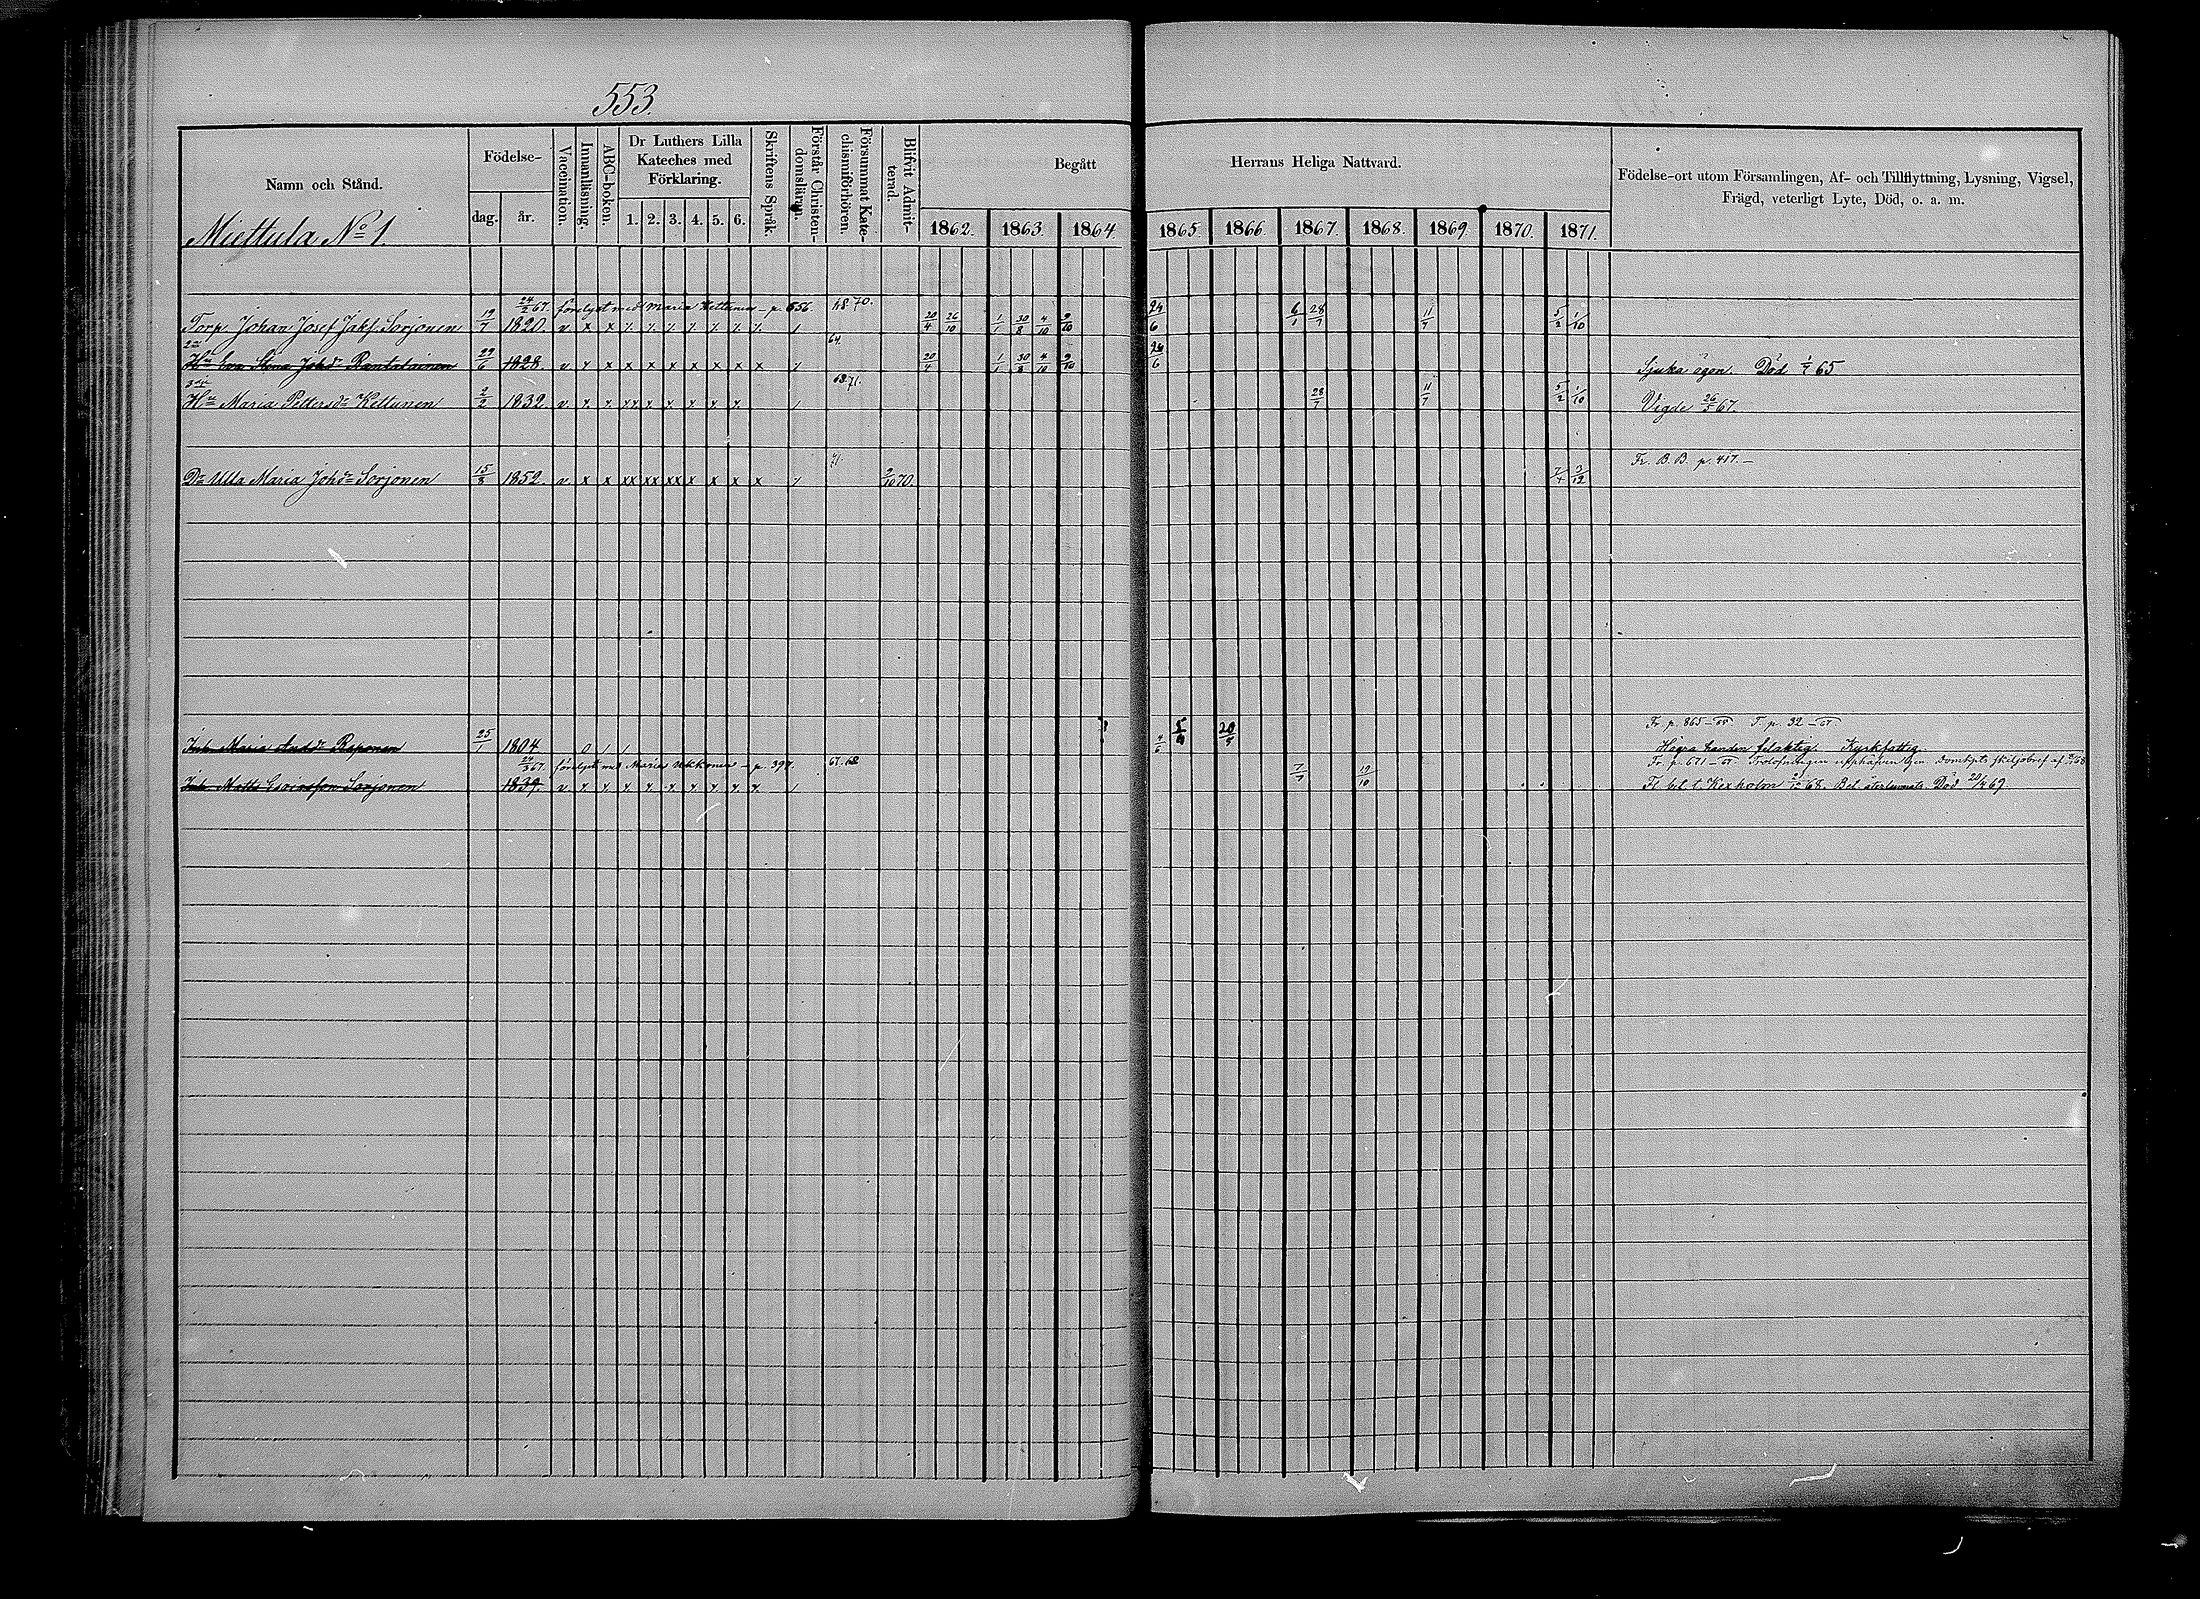 553.
Namn och Stånd.
Födelse-
dag. år.
Vaccination.
Innanläsning.
ABC-boken.
Dr Luthers Lilla Kateches med Förklaring.
1. 2. 3. 4. 5. 6.
Skriftens Språk.
Förstår Christendomsläran.
Försummat Katechismiförhören.
Blifvit Admitterad.
Begått Herrans Heliga Nattvard.
1862. 1863. 1864. 1865. 1866. 1867. 1868. 1869. 1870. 1871.
Födelse-ort utom Församlingen, Af- och Tillflyttning, Lysning, Vigsel,
Frägd, veterligt Lyte, Död, o. a. m.
Miettula No 1.
24/2 67. förelyst med Maria Kettunen – p. 656. 68. 70.
Torp. Johan Josef Jaks. Sorjonen 19/7 1820 v x x x x x x x x x / 20/4 26/10 1/1 30/8 4/10 9/10 24/6 6/1 28/7 11/7 5/2 1/10
2a 64.
Hu Eva Stina Johdr Rantalainen 29/6 1828 v x x x x x x x x x / 20/4 1/1 30/8 4/10 9/10 24/6 Sjuka ögon. Död 1/7 65
3dje 68. 71.
Hu Maria Pettersdr Kettunen 2/2 1832 v. x x xx x x x x x / 28/7 11/7 5/2 1/10 Vigde 26/5 67.
71. Fr. B. B. p. 417. –
Dr Ulla Maria Johdr Sorjonen 15/8 1852 v. x x xx xx xx x x x x / 2/10 70. 7/4 3/12
Fr. p. 865 – 65 T. p. 32 – 67
Inh. Maria Andsdr Reponen 25/1 1804 0 / / 4/6 5/4 20/5 Högra handen felaktig. Kyrkfattig.
24/3 67. förelyst med Maria Ukkonen – p. 397. 67. 68 Fr. p. 671 – 65 Trolofningen upphäfven gm Domkapts skiljobref af
Inh. Matts Esaiasson Sorjonen 1839 v x x x x x x x x x / 7/7 19/10 Fl. bet. t. Kexholm 68. Bet. återlemnats. Död 20/4 69.